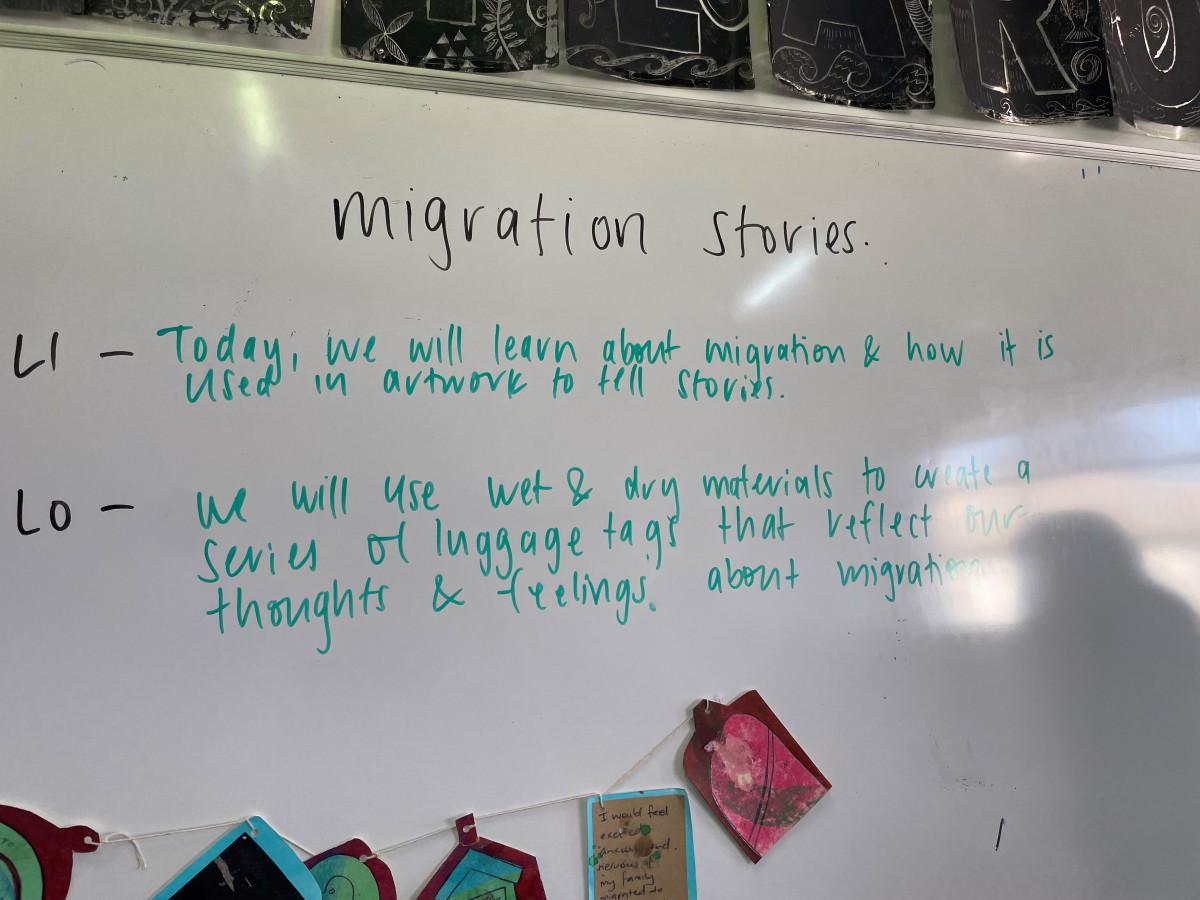 L A R O
migration stories.
LI - Today, we will learn about migration & how it is
used in artwork to tell stories.
LO - we will use wet & dry materials to create a
series of luggage tags that reflect our
thoughts & feelings. about migration
I would feel
excited
and
nervous if
my family
migrated to